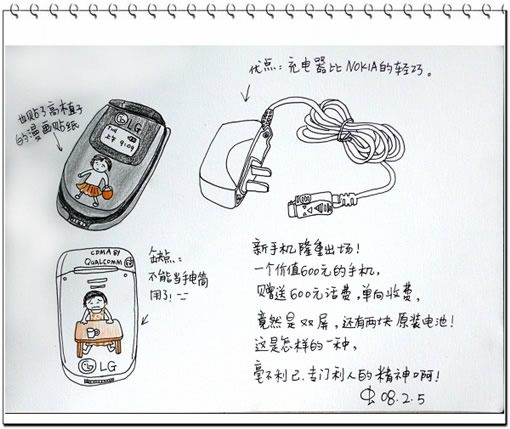 优点：充电器比NOKIA的轻巧。
也贴了高木直子
的漫画贴纸
LG
Tue
上午 9:09
CDMA BY
QUALCOMM
缺点：
不能当手电筒
用了！
LG
新手机隆重出场！
一个价值600元的手机，
赠送600元话费，单向收费，
竟然是双屏，还有两块原装电池！
这是怎样的一种，
毫不利己、专门利人的精神啊！
08.2.5